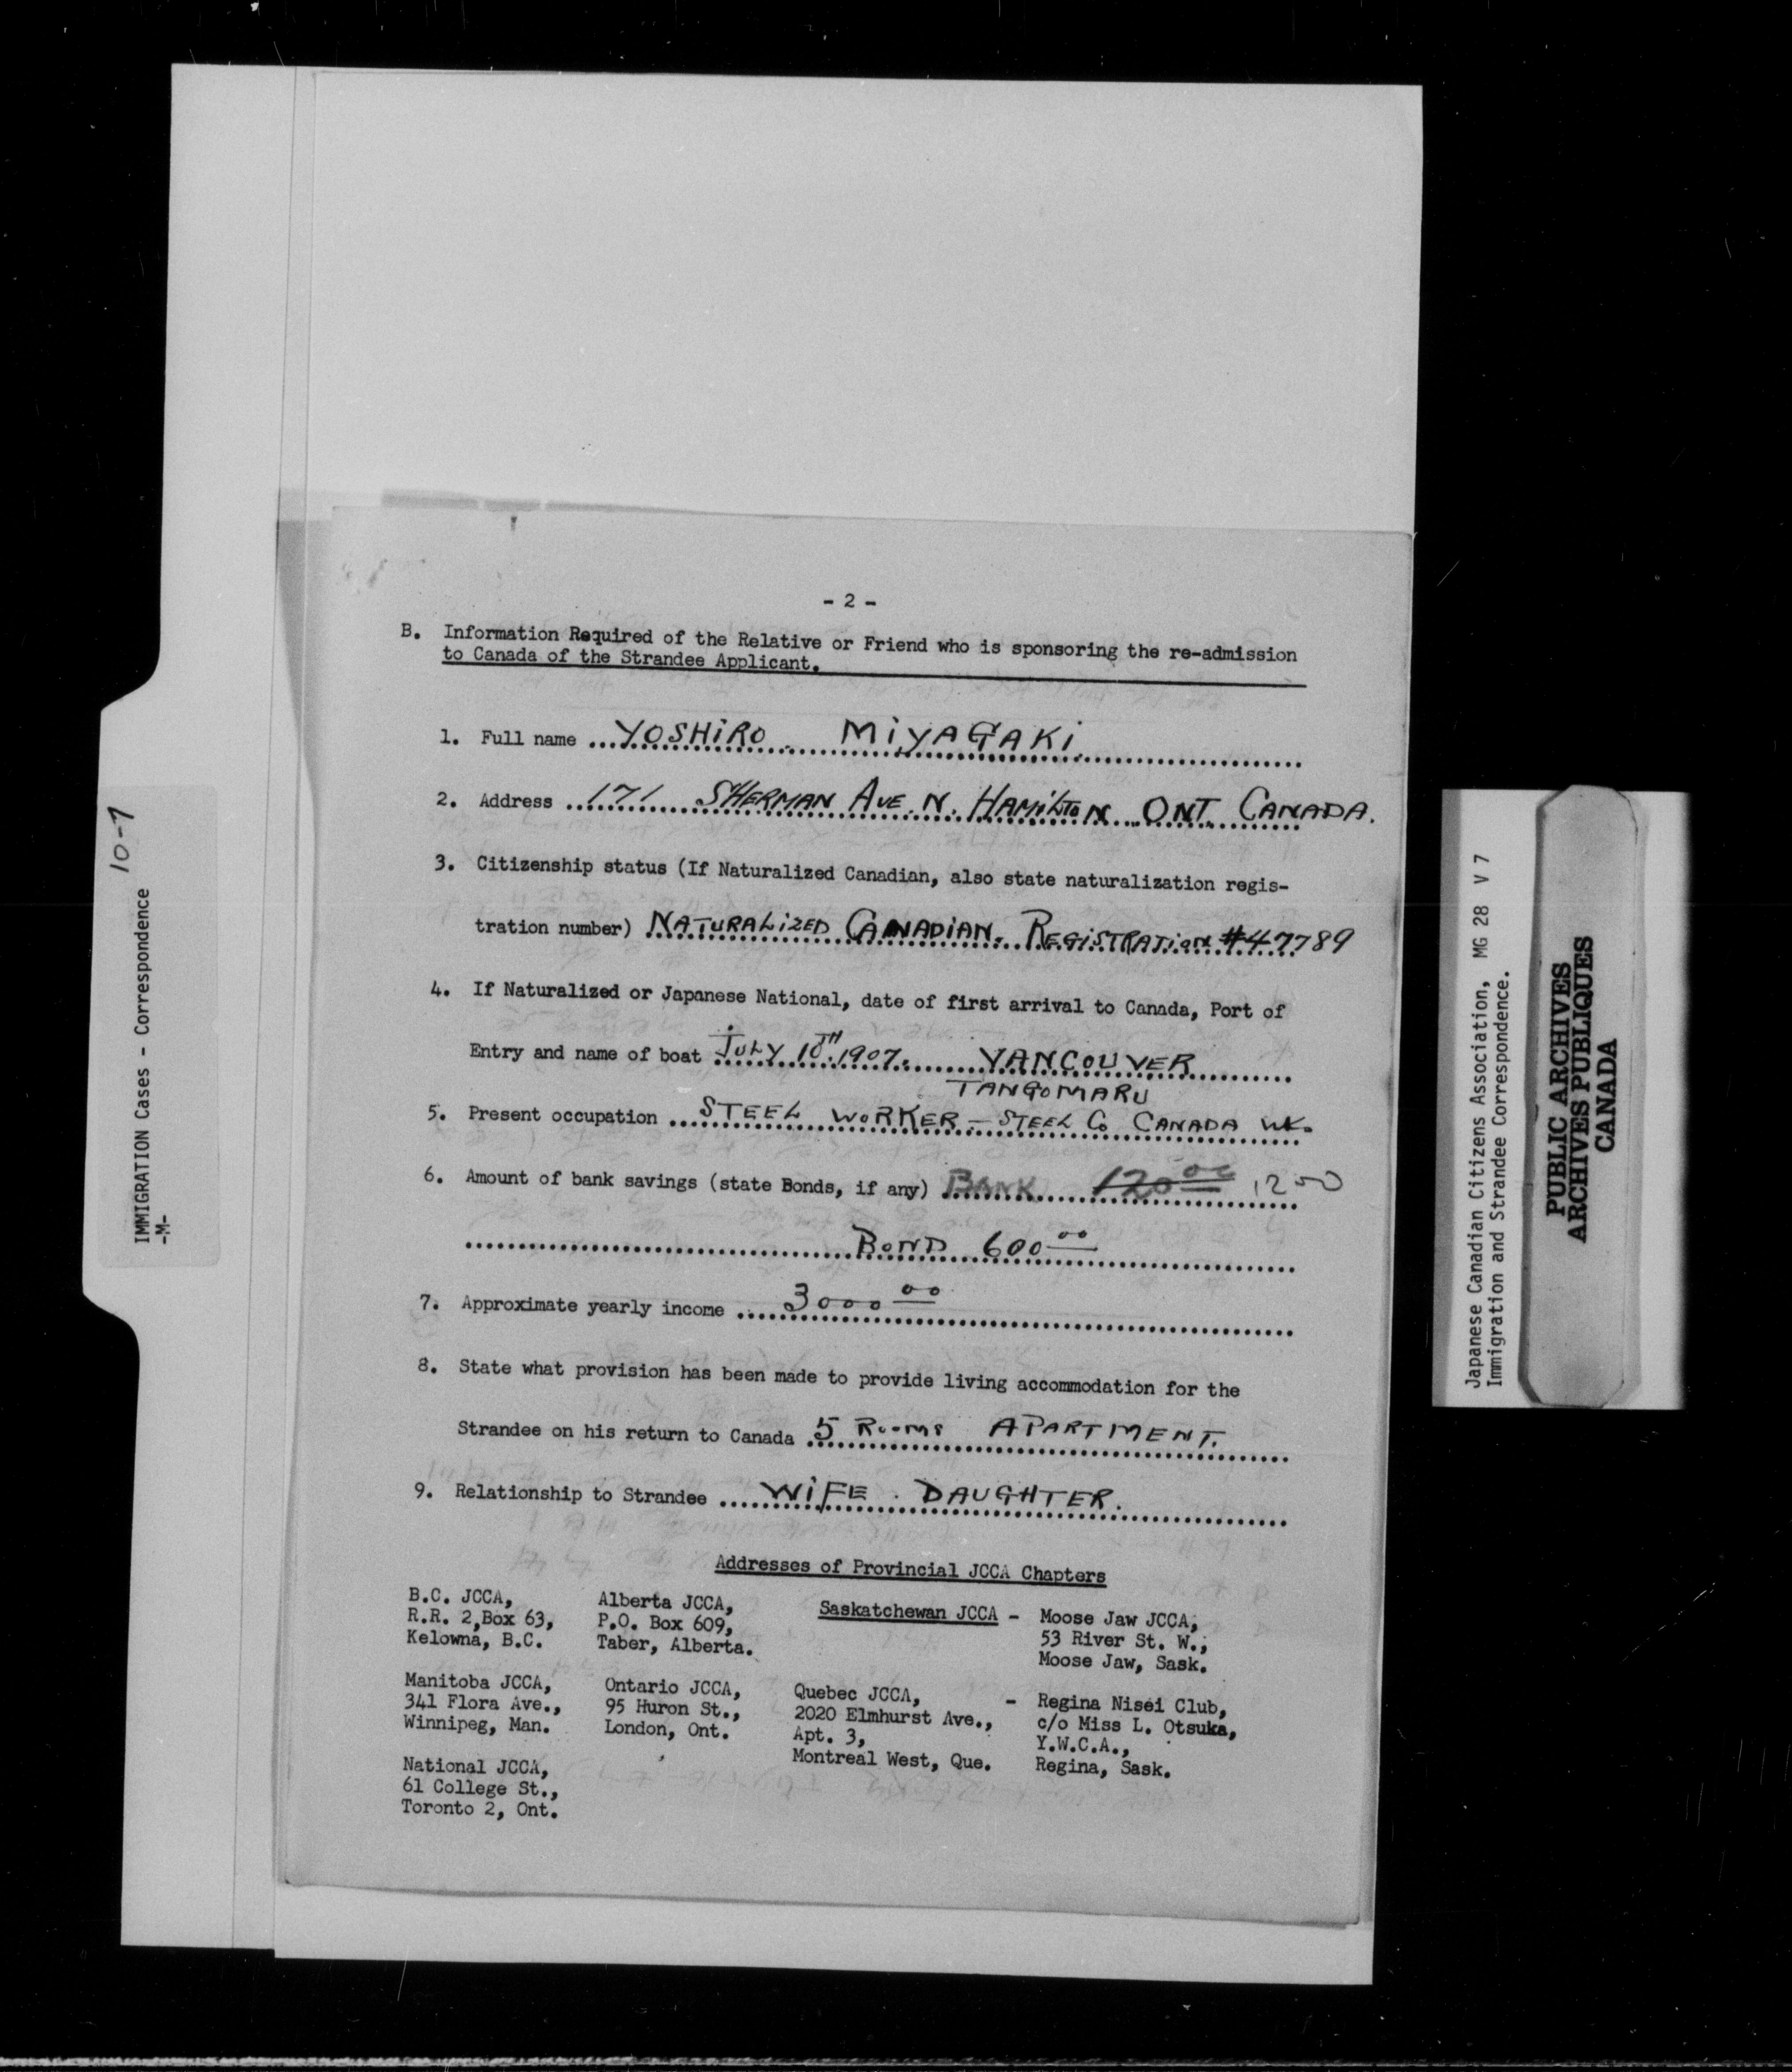 - 2 -
B. Information Required of the Relative or Friend who is sponsoring the re-admission
to Canada of the Strandee Applicant.
1. Full name YOSHIRO MIYAGAKI
2. Address 171 SHERMAN AVE. N. HAMILTON ONT. CANADA.
3. Citizenship status (If Naturalized Canadian, also state naturalization regis-
tration number) NATURALIZED CANADIAN. REGISTRATION #47789
4. If Naturalized or Japanese National, date of first arrival to Canada, Port of
Entry and name of boat JULY 10TH 1907. VANCOUVER
TANGOMARU
5. Present occupation STEEL WORKER - STEEL Co CANADA WK.
6. Amount of bank savings (state Bonds, if any) BANK 120 00 1200
BOND 600 00
7. Approximate yearly income 3000 00
8. State what provision has been made to provide living accommodation for the
Strandee on his return to Canada 5 ROOMS APARTMENT.
9. Relationship to Strandee WIFE. DAUGHTER.
Addresses of Provincial JCCA Chapters
B.C. JCCA,
R.R. 2,Box 63,
Kelowna, B.C.
Alberta JCCA,
P.O. Box 609,
Taber, Alberta.
Saskatchewan JCCA - Moose Jaw JCCA,
53 River St. W.,
Moose Jaw, Sask.
Manitoba JCCA,
341 Flora Ave.,
Winnipeg, Man.
Ontario JCCA,
95 Huron St.,
London, Ont.
Quebec JCCA,
2020 Elmhurst Ave.,
Apt. 3,
Montreal West, Que.
- Regina Nisei Club,
c/o Miss L. Otsuka,
Y.W.C.A.,
Regina, Sask.
National JCCA,
61 College St.,
Toronto 2, Ont.
IMMIGRATION Cases - Correspondence 10-7
-M-
Japanese Canadian Citizens Association, MG 28 V 7
Immigration and Strandee Correspondence.
PUBLIC ARCHIVES
ARCHIVES PUBLIQUES
CANADA